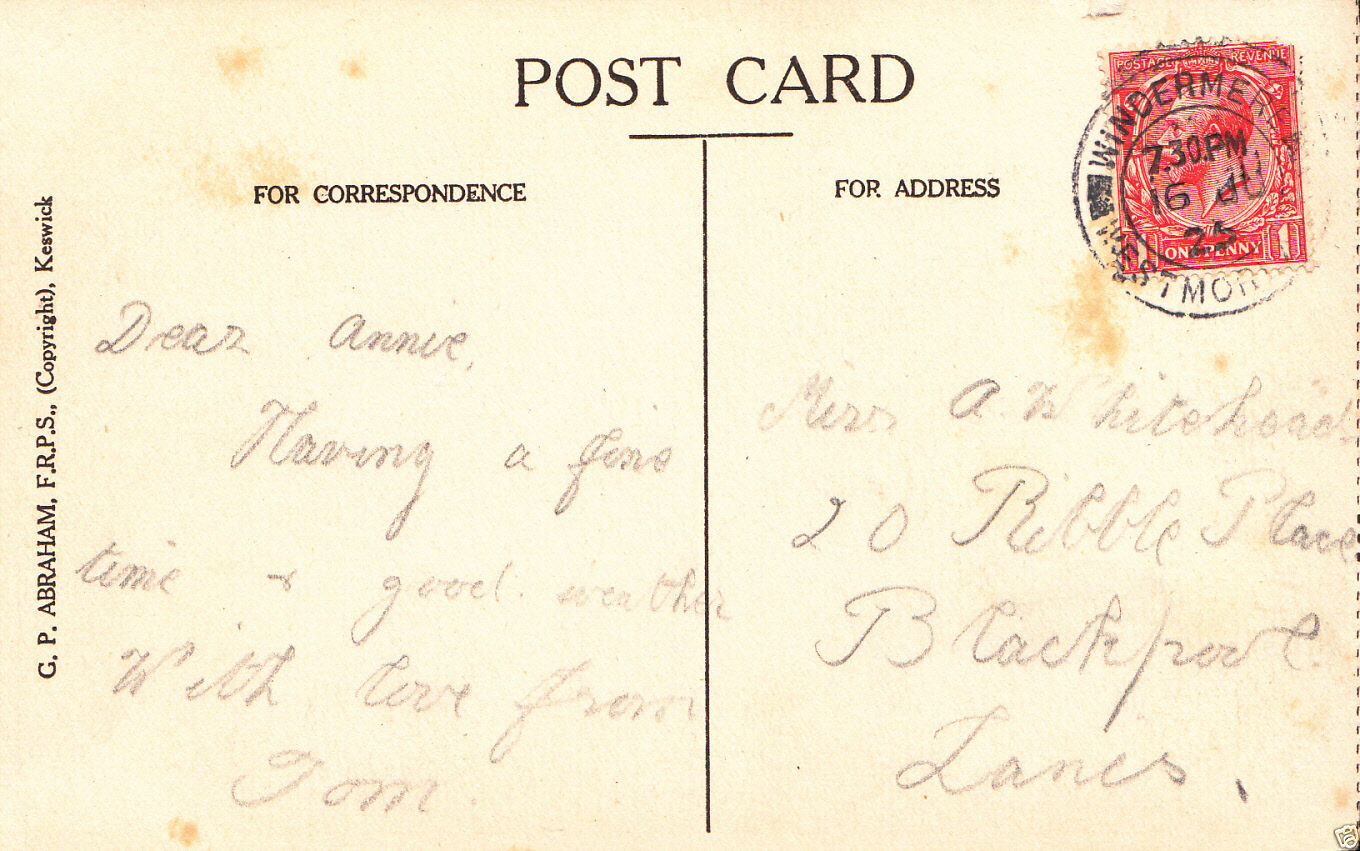 POST CARD
FOR CORRESPONDENCE
Dear Annie,
Having a fine
time & good weather
With love from
Tom
G. P. ABRAHAM, F.R.P.S., (Copyright), Keswick
FOR ADDRESS
Miss A Whitehead
20 Ribble Place
Blackpool.
Lancs,
POSTAGE REVENUE
ONE PENNY
WINDERMERE
7.30.PM
16 JU
25
WESTMOR